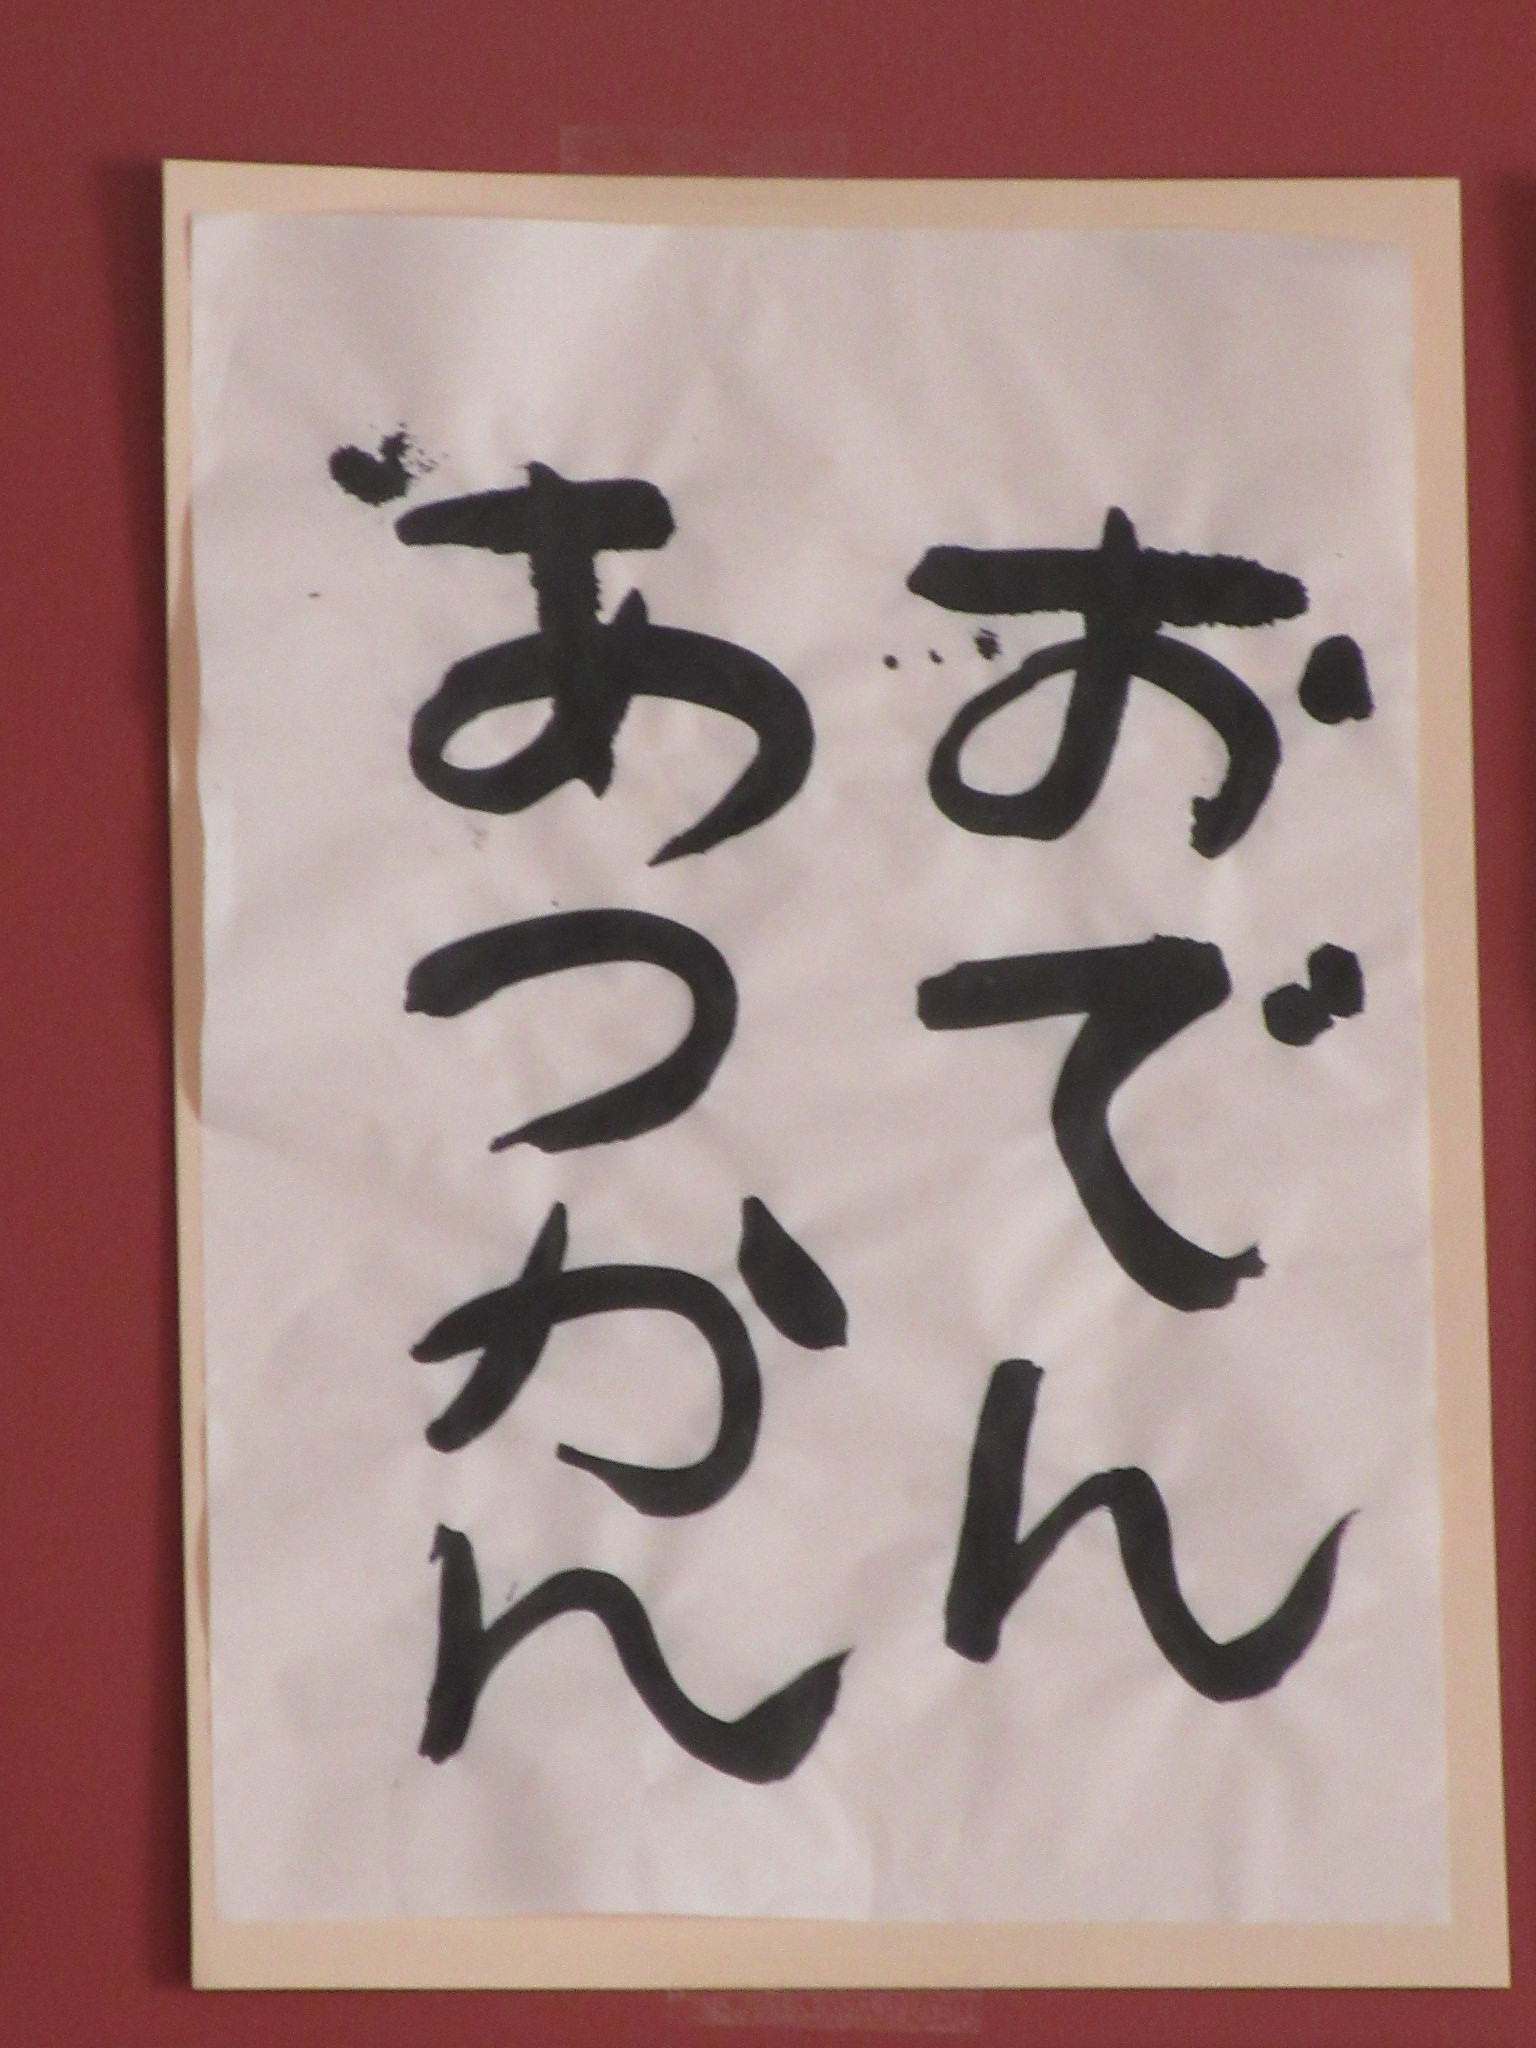 おでん
あつかん